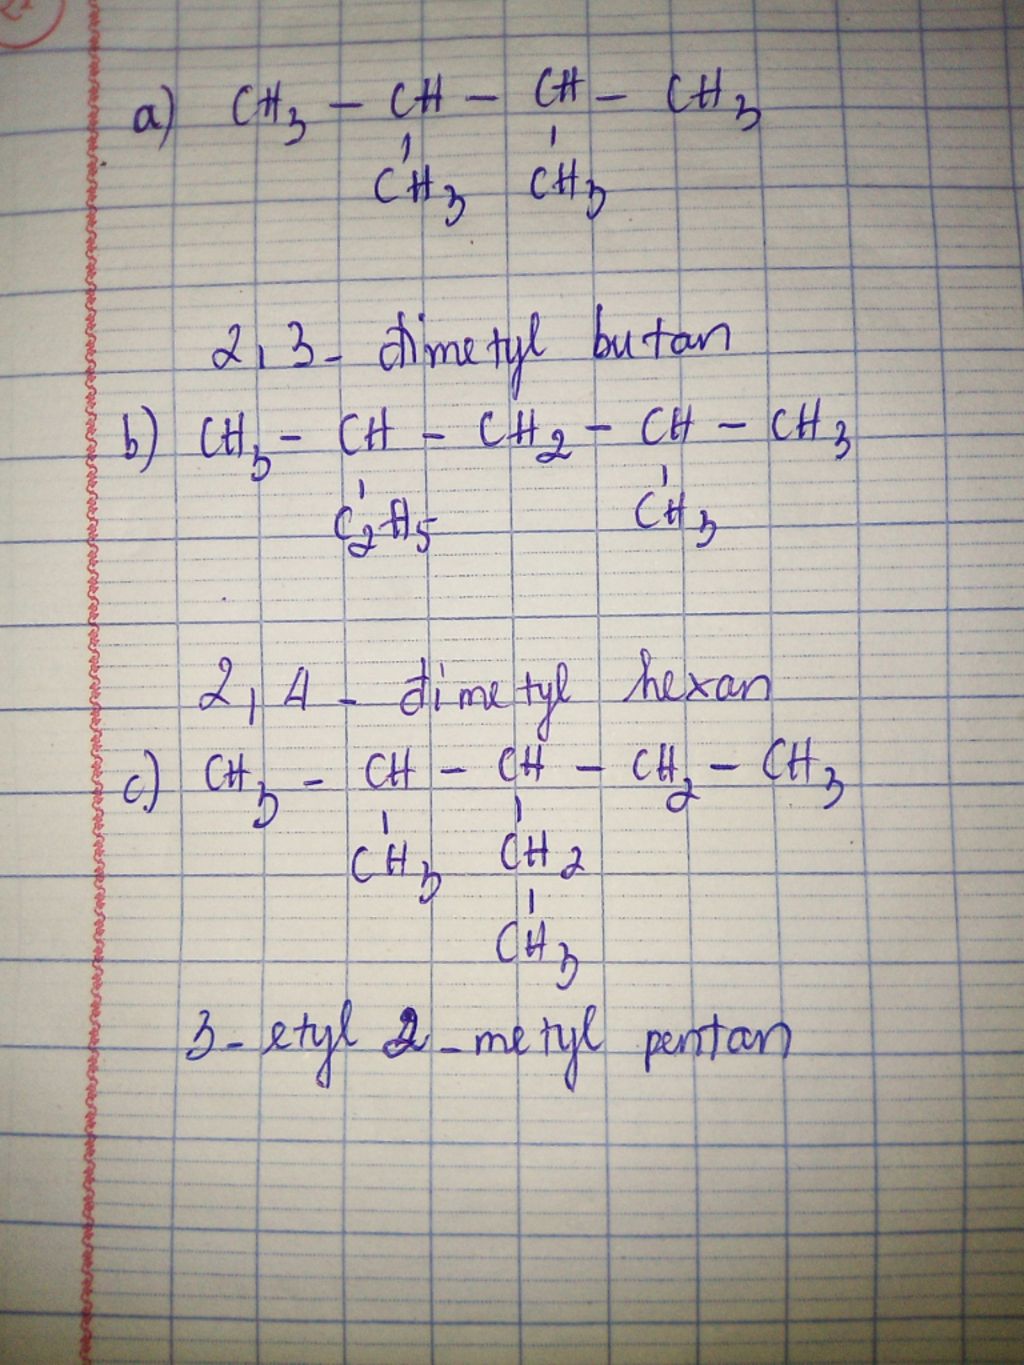 a) CH3 - CH - CH - CH3
CH3 CH3
2,3- đimetyl butan
b) CH3 - CH - CH2 - CH - CH3
C2H5 CH3
2,4 - đimetyl hexan
c) CH3 - CH - CH - CH2 - CH3
CH3 CH2
CH3
3- etyl 2-metyl pentan